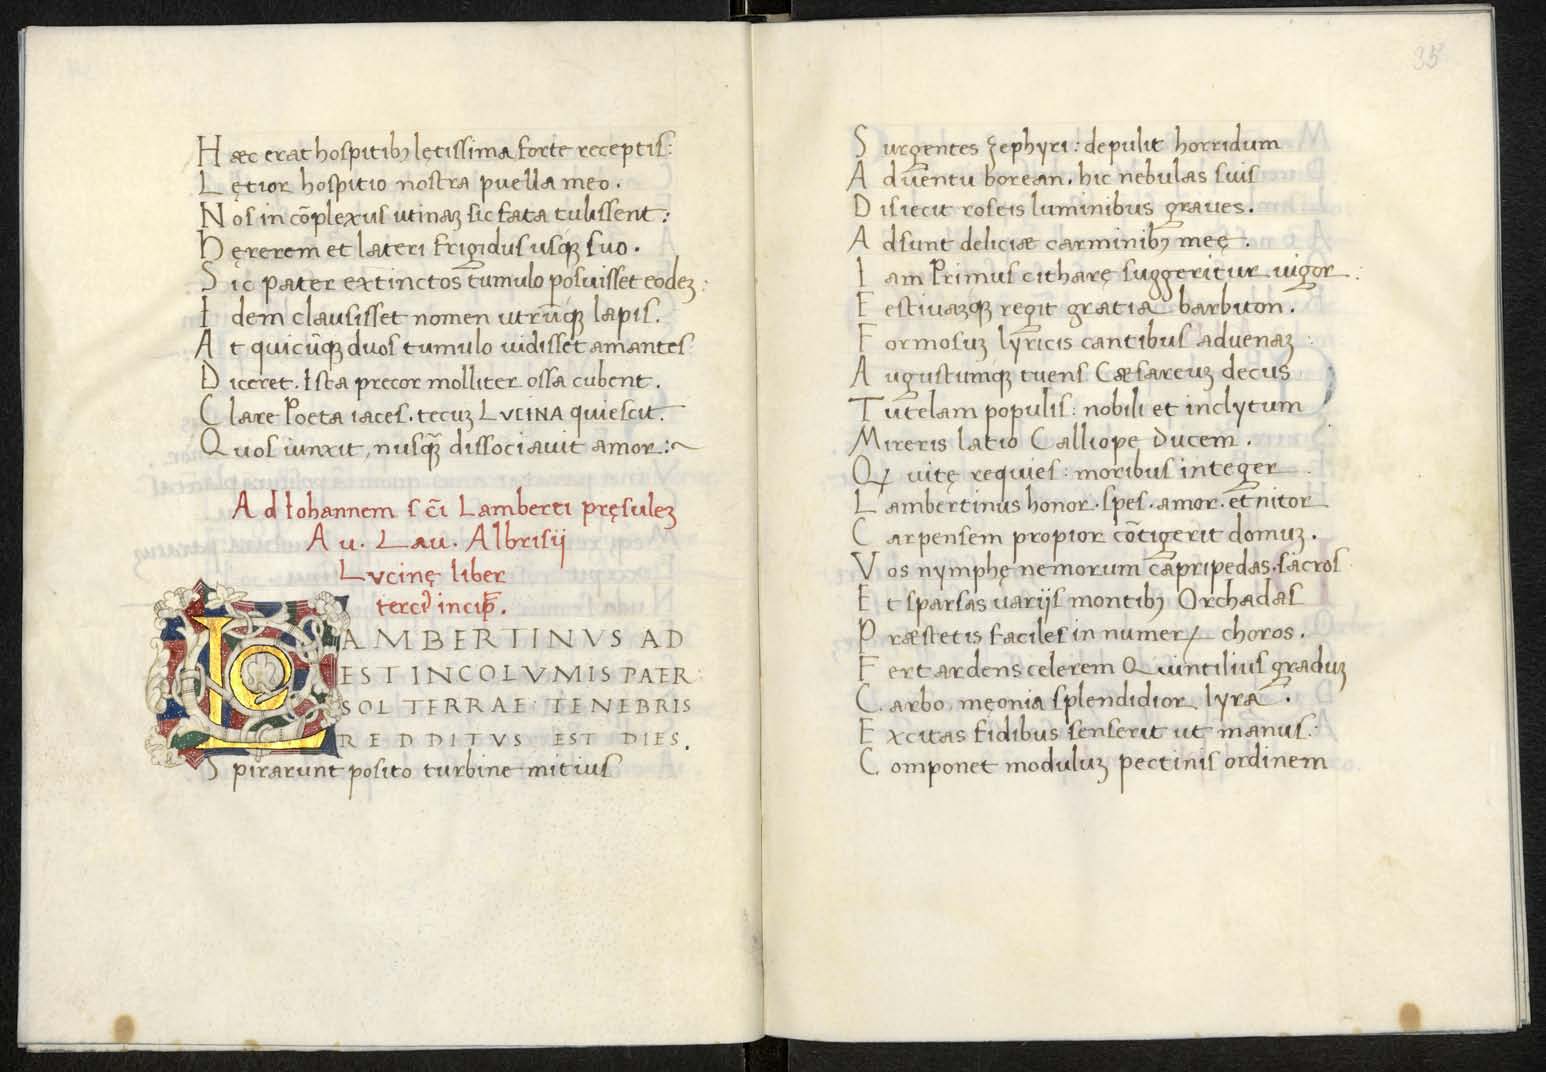 Hæc erat hospitibꝫ lętissima forte receptis:
Lętior hospitio nostra puella meo.
Nos in cōplexus utinaꝫ sic fata tulissent:
Hęrerem et lateri frigidus usqꝫ suo.
Sic pater extinctos tumulo posuisset eodeꝫ:
Idem clausisset nomen utrūqꝫ lapis.
At quicūqꝫ duos tumulo uidisset amantes
Diceret. Ista precor molliter ossa cubent.
Clare Poeta iaces. tecuꝫ LVCINA quiescit.
Quos iunxit, nusqꝫ̃ dissociauit amor:~
Ad Iohannem s c̄i Lamberti pręsuleꝫ
Au. Lau. Albrisij
Lvcinę liber
tercī incip̄.
LAMBERTINVS AD
EST INCOLVMIS PATER:
SOL TERRAE TENEBRIS
REDDITVS EST DIES.
Spirarunt posito turbine mitius
35
Surgentes zephyri: depulit horridum
Aduentu borean. hic nebulas suis
Disiecit roseis luminibus graues.
Adsunt deliciæ carminibꝫ meę.
Iam Primus citharę suggeritur uigor:
Festiuaꝫqꝫ regit gratia barbiton.
Formosuꝫ lyricis cantibus aduenaꝫ:
Augustumqꝫ tuens Cæsareuꝫ decus
Tutelam populis: nobili et inclytum
Mireris latio Calliope Ducem.
Qꝫ uitę requies: moribus integer
Lambertinus honor. spes. amor. et nitor
Carpensem propior cōtigerit domuꝫ.
Vos nymphę nemorum capripedas. sacros
Et sparsas uarijs montibꝫ Orchadas
Præstetis faciles in numeꝝ choros.
Fert ardens celerem Quintilius graduꝫ
Carbo męonia splendidior lyra.
Excitas fidibus senserit ut manus:
Componet moduluꝫ pectinis ordinem